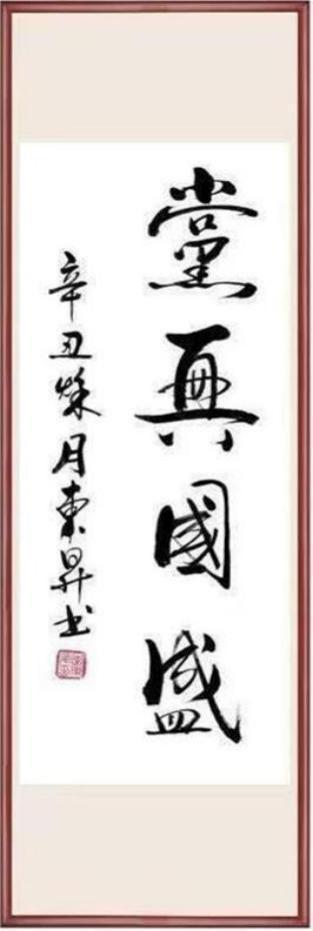 黨興國盛
辛丑秌月東昇书